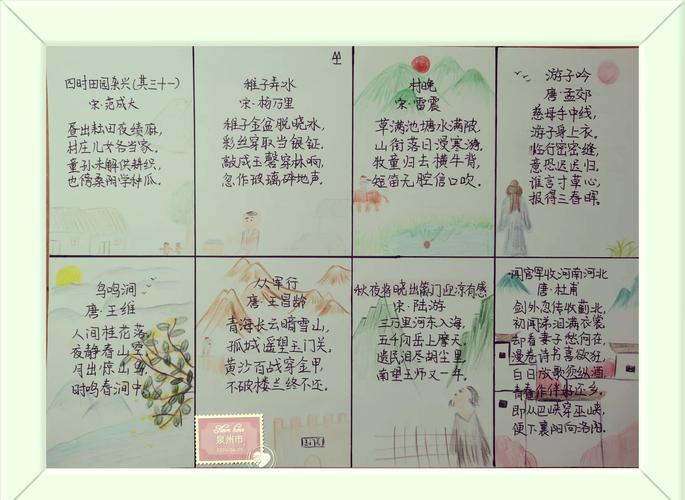 四时田园杂兴(其三十一)
宋·范成大
昼出耘田夜绩麻,
村庄儿女各当家,
童孙未解供耕织,
也傍桑阴学种瓜。
稚子弄冰
宋·杨万里
稚子金盆脱晓冰,
彩丝穿取当银钲,
敲成玉磬穿林响,
忽作玻璃碎地声。
村晚
宋·雷震
草满池塘水满陂,
山衔落日浸寒漪,
牧童归去横牛背,
短笛无腔信口吹。
游子吟
唐·孟郊
慈母手中线,
游子身上衣。
临行密密缝,
意恐迟迟归。
谁言寸草心,
报得三春晖。
鸟鸣涧
唐·王维
人间桂花落,
夜静春山空,
月出惊山鸟,
时鸣春涧中。
从军行
唐·王昌龄
青海长云暗雪山,
孤城遥望玉门关,
黄沙百战穿金甲,
不破楼兰终不还。
秋夜将晓出篱门迎凉有感
宋·陆游
三万里河东入海,
五千仞岳上摩天。
遗民泪尽胡尘里,
南望王师又一年。
闻官军收河南河北
唐·杜甫
剑外忽传收蓟北,
初闻涕泪满衣裳。
却看妻子愁何在,
漫卷诗书喜欲狂。
白日放歌须纵酒,
青春作伴好还乡。
即从巴峡穿巫峡,
便下襄阳向洛阳。
泉州市